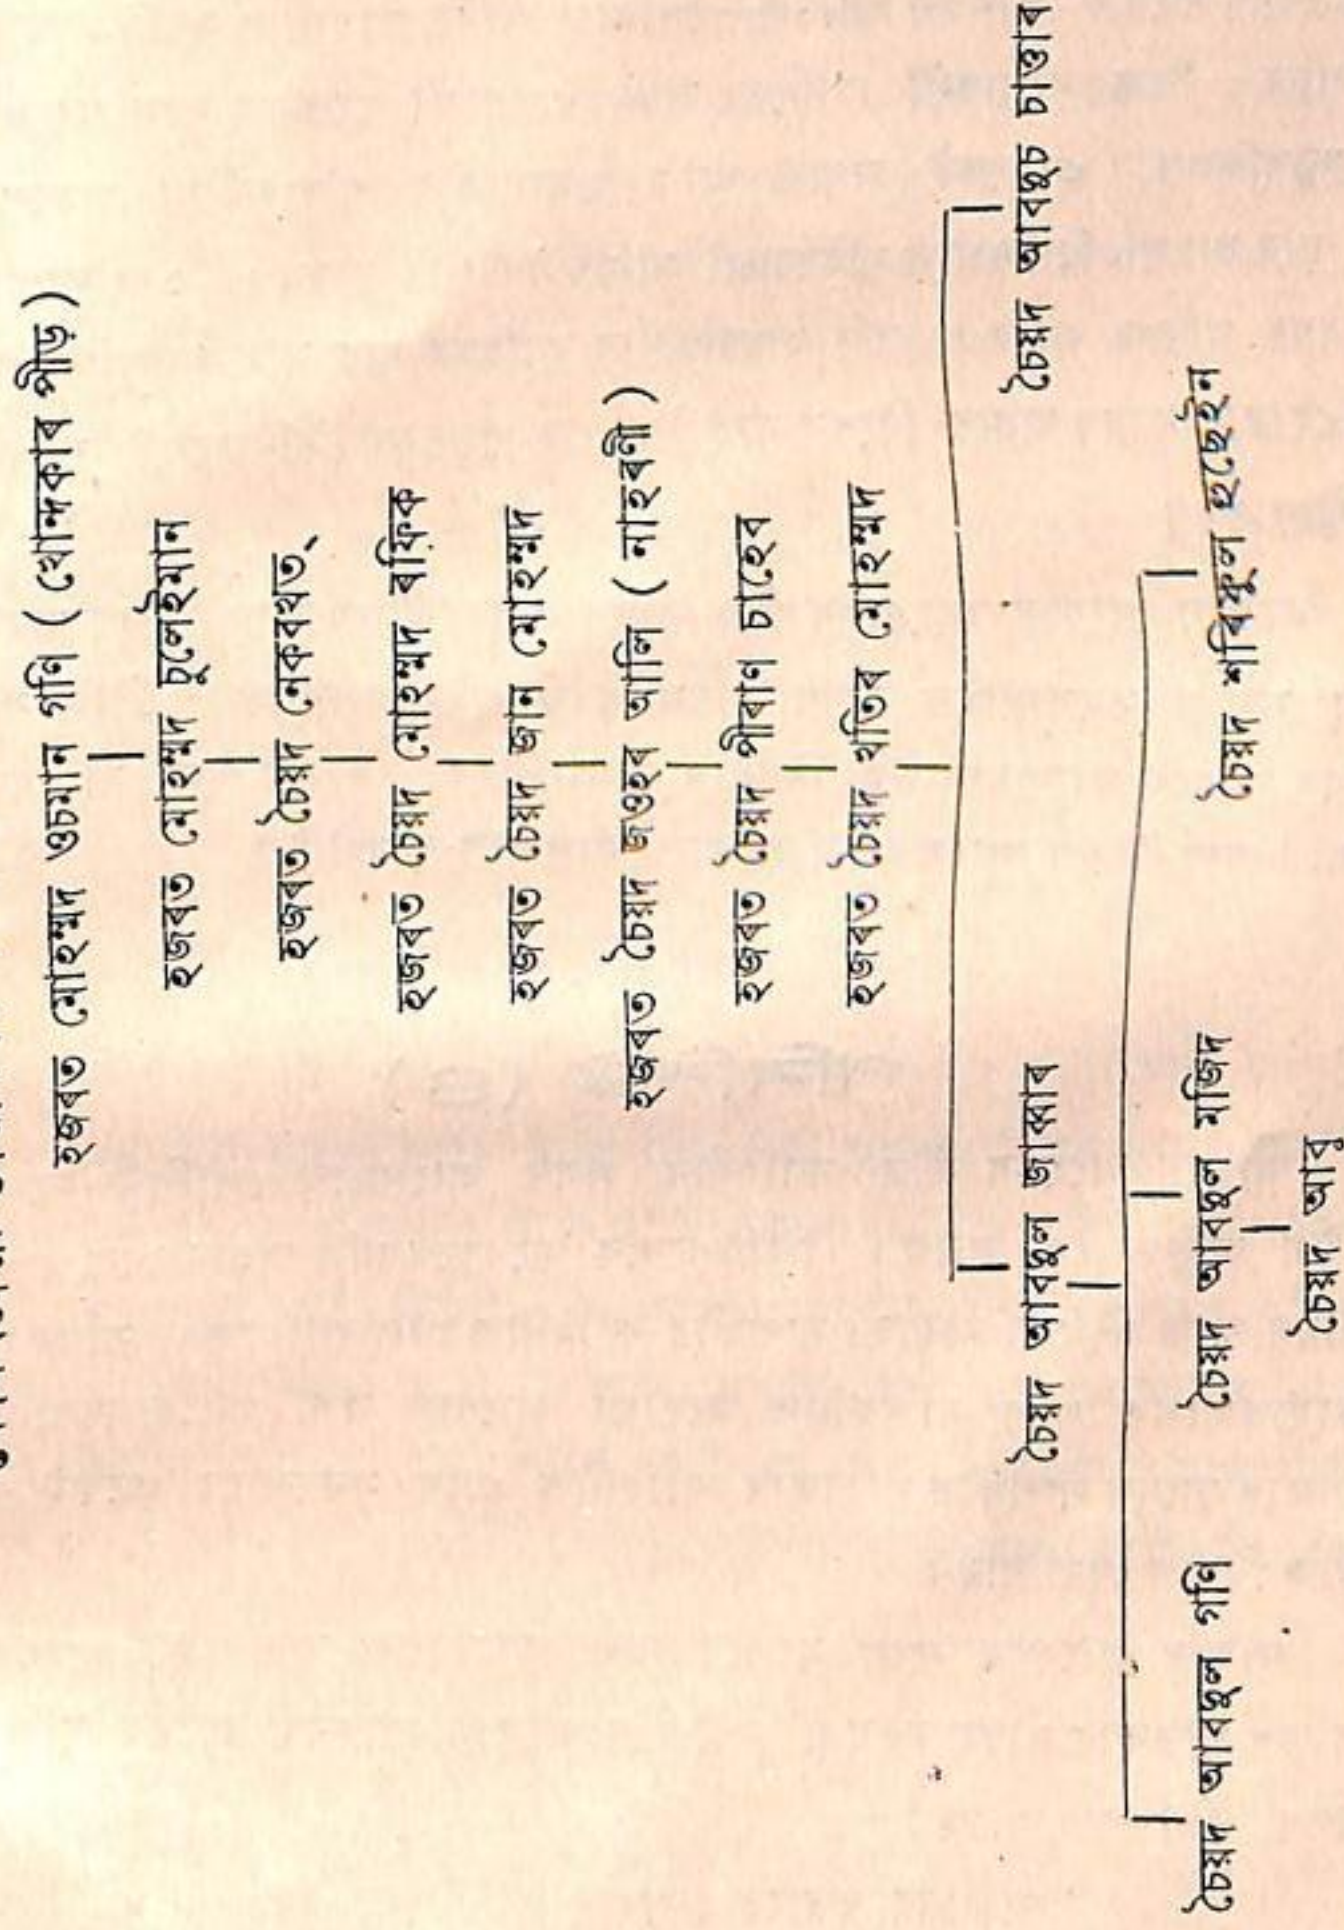 হজৰত মোহম্মদ ওচমান গনি ( খোন্দকাৰ পীড় )
হজৰত মোহম্মদ চুলেইমান
হজৰত চৈয়দ নেকবখত্
হজৰত চৈয়দ মোহম্মদ ৰফিক
হজৰত চৈয়দ জান মোহম্মদ
হজৰত চৈয়দ জওহৰ আলি ( নাহৰণী )
হজৰত চৈয়দ পীৰাণ চাহেব
হজৰত চৈয়দ মতিব মোহম্মদ
চৈয়দ আবদুল জাব্বাৰ চৈয়দ আবদুচ চাত্তাৰ
চৈয়দ আবদুল গনি চৈয়দ আবদুল মজিদ চৈয়দ শৰিফুল হুছেইন
চৈয়দ আবু